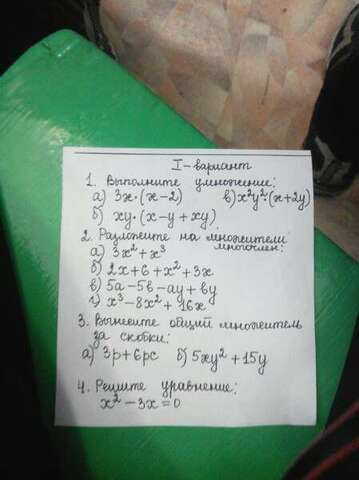 I-вариант
1. Выполните умножение:
а) 3x·(x-2) в) x²y²·(x+2y)
б) xy·(x-y+xy)
2. Разложите на множители многочлен:
а) 3x²+x³
б) 2x+6+x²+3x
в) 5a-5b-ay+by
г) x³-8x²+16x
3. Вынесите общий множитель
за скобки:
а) 3p+6pc б) 5xy²+15y
4. Решите уравнение:
x²-3x=0